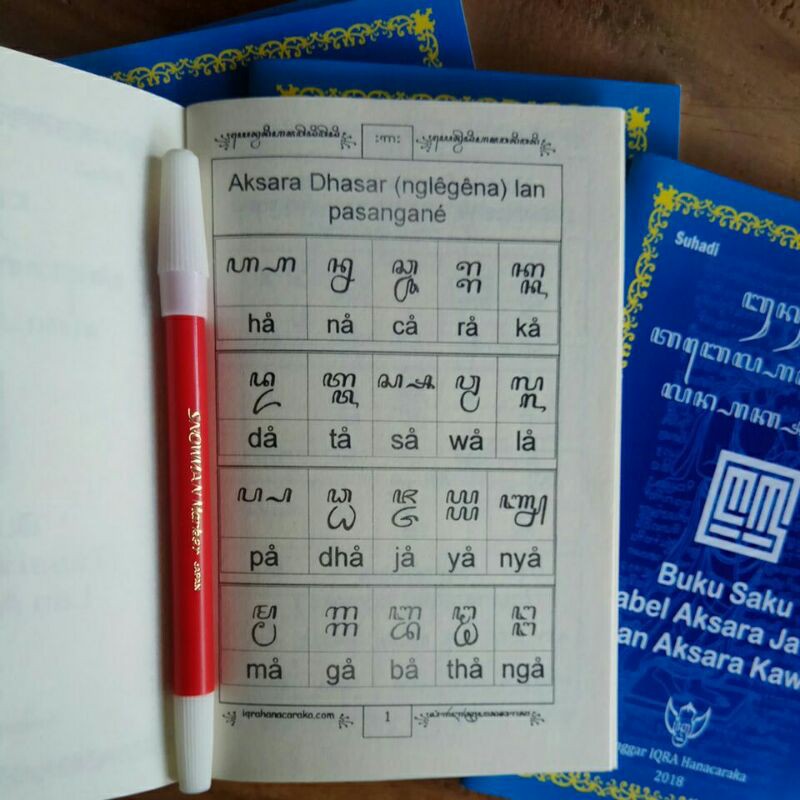 ꧇꧑꧇
Aksara Dhasar (nglêgêna) lan
pasangané
ꦲ꧀ꦲ ꦤ꧀ꦤ ꦕ꧀ꦕ ꦫ꧀ꦫ ꦏ꧀ꦏ
hå nå cå rå kå
ꦢ꧀ꦢ ꦠ꧀ꦠ ꦱ꧀ꦱ ꦮ꧀ꦮ ꦭ꧀ꦭ
då tå så wå lå
ꦥ꧀ꦥ ꦝ꧀ꦝ ꦗ꧀ꦗ ꦪ꧀ꦪ ꦚ꧀ꦚ
på dhå jå yå nyå
ꦩ꧀ꦩ ꦒ꧀ꦒ ꦧ꧀ꦧ ꦛ꧀ꦛ ꦔ꧀ꦔ
må gå bå thå ngå
iqrahanacaraka.com 1
SNOWMAN Marker JAPAN
Suhadi
Buku Saku
abel Aksara Ja
an Aksara Kaw
nggar IQRA Hanacaraka
2018